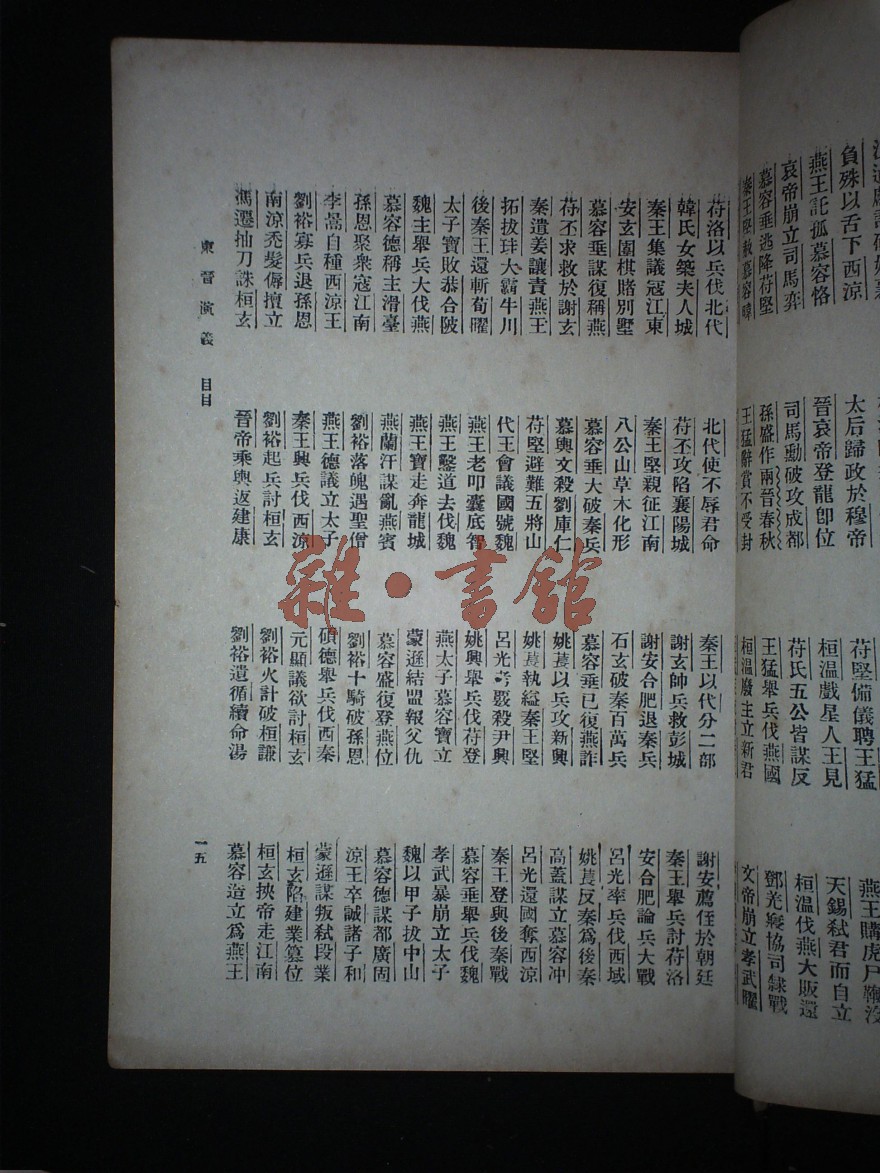 負殊以舌下西涼 太后歸政於穆帝 苻堅備儀聘王猛 燕王購虎尸鞭沒
燕王託孤慕容恪 晉哀帝登龍卽位 桓溫戲星人王見 天錫弑君而自立
哀帝崩立司馬奕 司馬勳破攻成都 苻氏五公皆謀反 桓溫伐燕大敗還
慕容垂逃降苻堅 孫盛作兩晉春秋 王猛舉兵伐燕國 鄧羌協司隸戰
秦王堅赦慕容暐 王猛辭賞不受封 桓溫廢主立新君 文帝崩立孝武曜
苻洛以兵伐北代 北代使不辱君命 秦王以代分二部 謝安薦侄於朝廷
韓氏女築夫人城 苻丕攻陷襄陽城 謝玄帥兵救彭城 秦王舉兵討苻洛
秦王集議寇江東 秦王堅親征江南 謝安合肥退秦兵 安合肥論兵大戰
安玄圍棋賭別墅 八公山草木化形 石玄破秦百萬兵 呂光率兵伐西域
慕容垂謀復稱燕 慕容垂大破秦兵 慕容垂已復燕詐 姚萇反秦爲後秦
苻丕求救於謝玄 慕輿文殺劉庫仁 姚萇以兵攻新興 高蓋謀立慕容冲
秦遣姜讓責燕王 苻堅避難五將山 姚萇執縊秦王堅 呂光還國奪西涼
拓拔珪大霸牛川 代王會議國號魏 呂光考覈殺尹興 秦王登與後秦戰
後秦王還斬荀曜 燕王老叩囊底智 姚興舉兵伐苻登 慕容垂舉兵伐魏
太子寶敗恭合陂 燕王鑿道去伐魏 燕太子慕容寶立 孝武暴崩立太子
魏主舉兵大伐燕 燕王寶走奔龍城 蒙遜結盟報父仇 魏以甲子拔中山
慕容德稱主滑臺 燕蘭汗謀亂燕賓 慕容盛復登燕位 慕容德謀都廣固
孫恩聚衆寇江南 劉裕落魄遇聖僧 劉裕十騎破孫恩 涼王卒誠諸子和
李暠自種西涼王 燕王德議立太子 碩德舉兵伐西秦 蒙遜謀叛弑段業
劉裕寡兵退孫恩 秦王興兵伐西涼 元顯議欲討桓玄 桓玄陷建業篡位
南涼禿髮傉擅立 劉裕起兵討桓玄 劉裕火計破桓謙 桓玄挾帝走江南
馮遷抽刀誅桓玄 晉帝乘輿返建康 劉裕遺循續命湯 慕容造立爲燕王
東晉演義 目目 一五
雜·書館